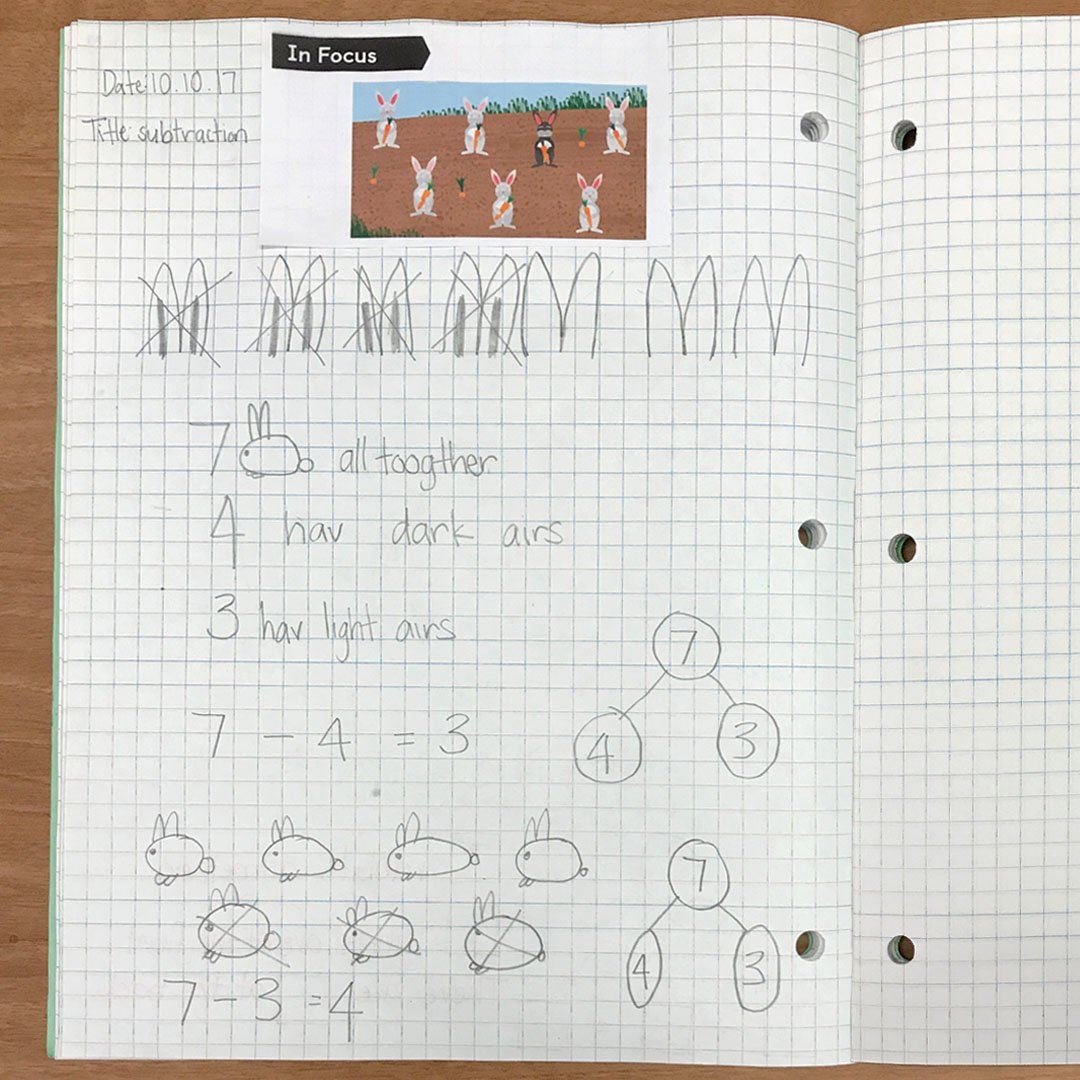 In Focus
Date: 10.10.17
Title subtraction
7 all toogther
4 hav dark airs
3 hav light airs
7
4 3
7 - 4 = 3
7
4 3
7 - 3 = 4